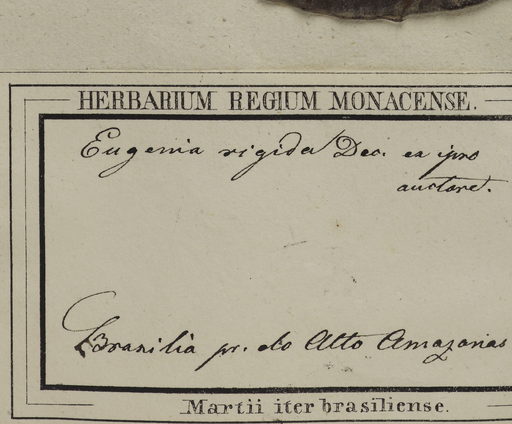 HERBARIUM REGIUM MONACENSE.
Eugenia rigida Dec. ex ipso
auctore.
Brasilia pr. do Alto Amazonas
Martii iter brasiliense.